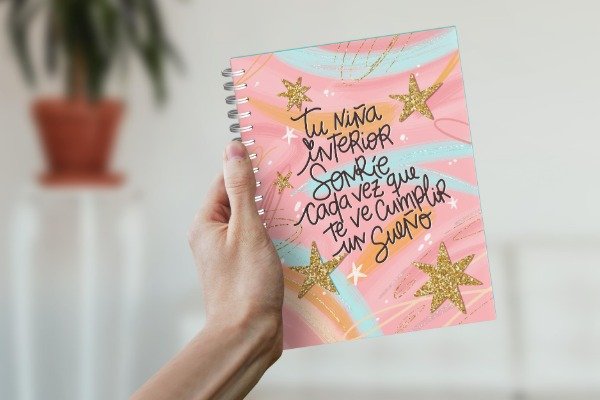 Tu NIÑA
INTERIOR
SONRÍE
CADA VEZ QUE
TE VE CUMPLIR
UN SUEÑO